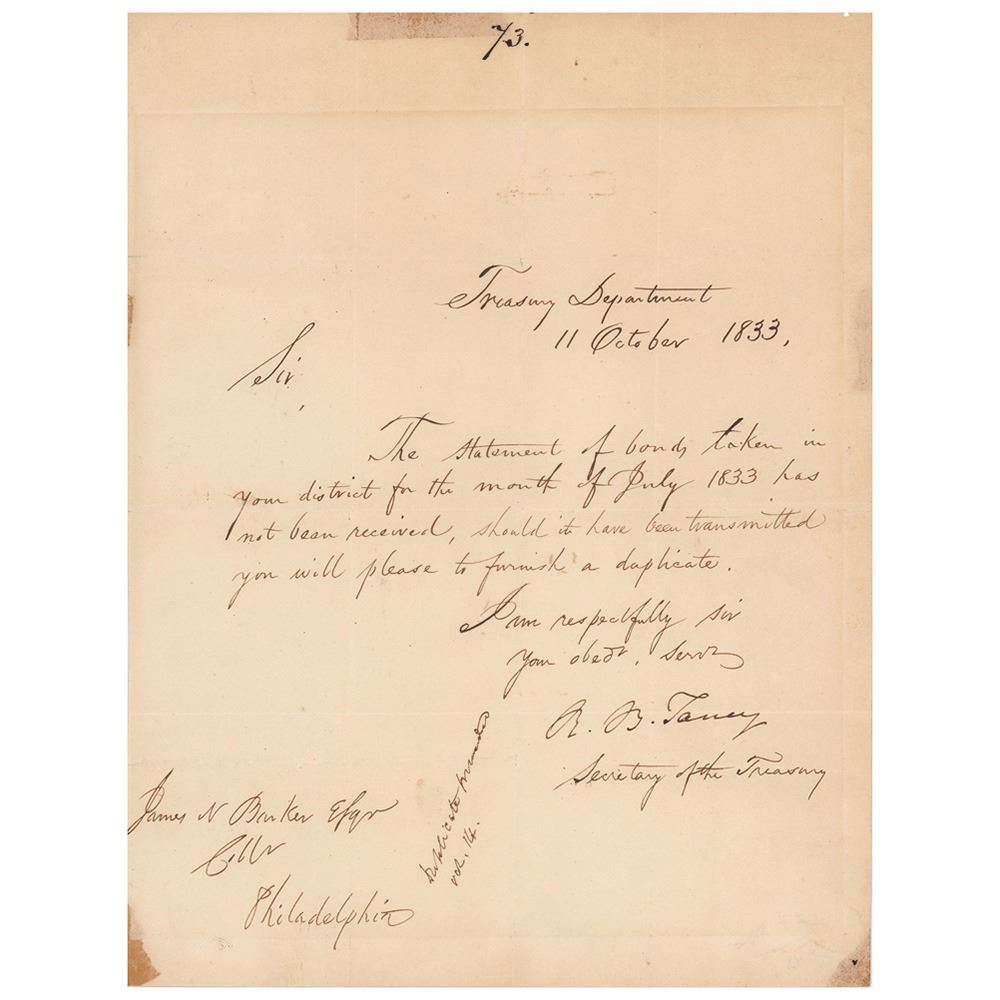 73.
Treasury Department
11 October 1833,
Sir,
The statement of bonds taken in
your district for the month of July 1833 has
not been received, should it have been transmitted
you will please to furnish a duplicate.
I am respectfully sir
Your obedt. Servt
R. B. Taney
Secretary of the Treasury
James N Barker Esqr
Collr
Philadelphia
Duplicate
Oct. 14.